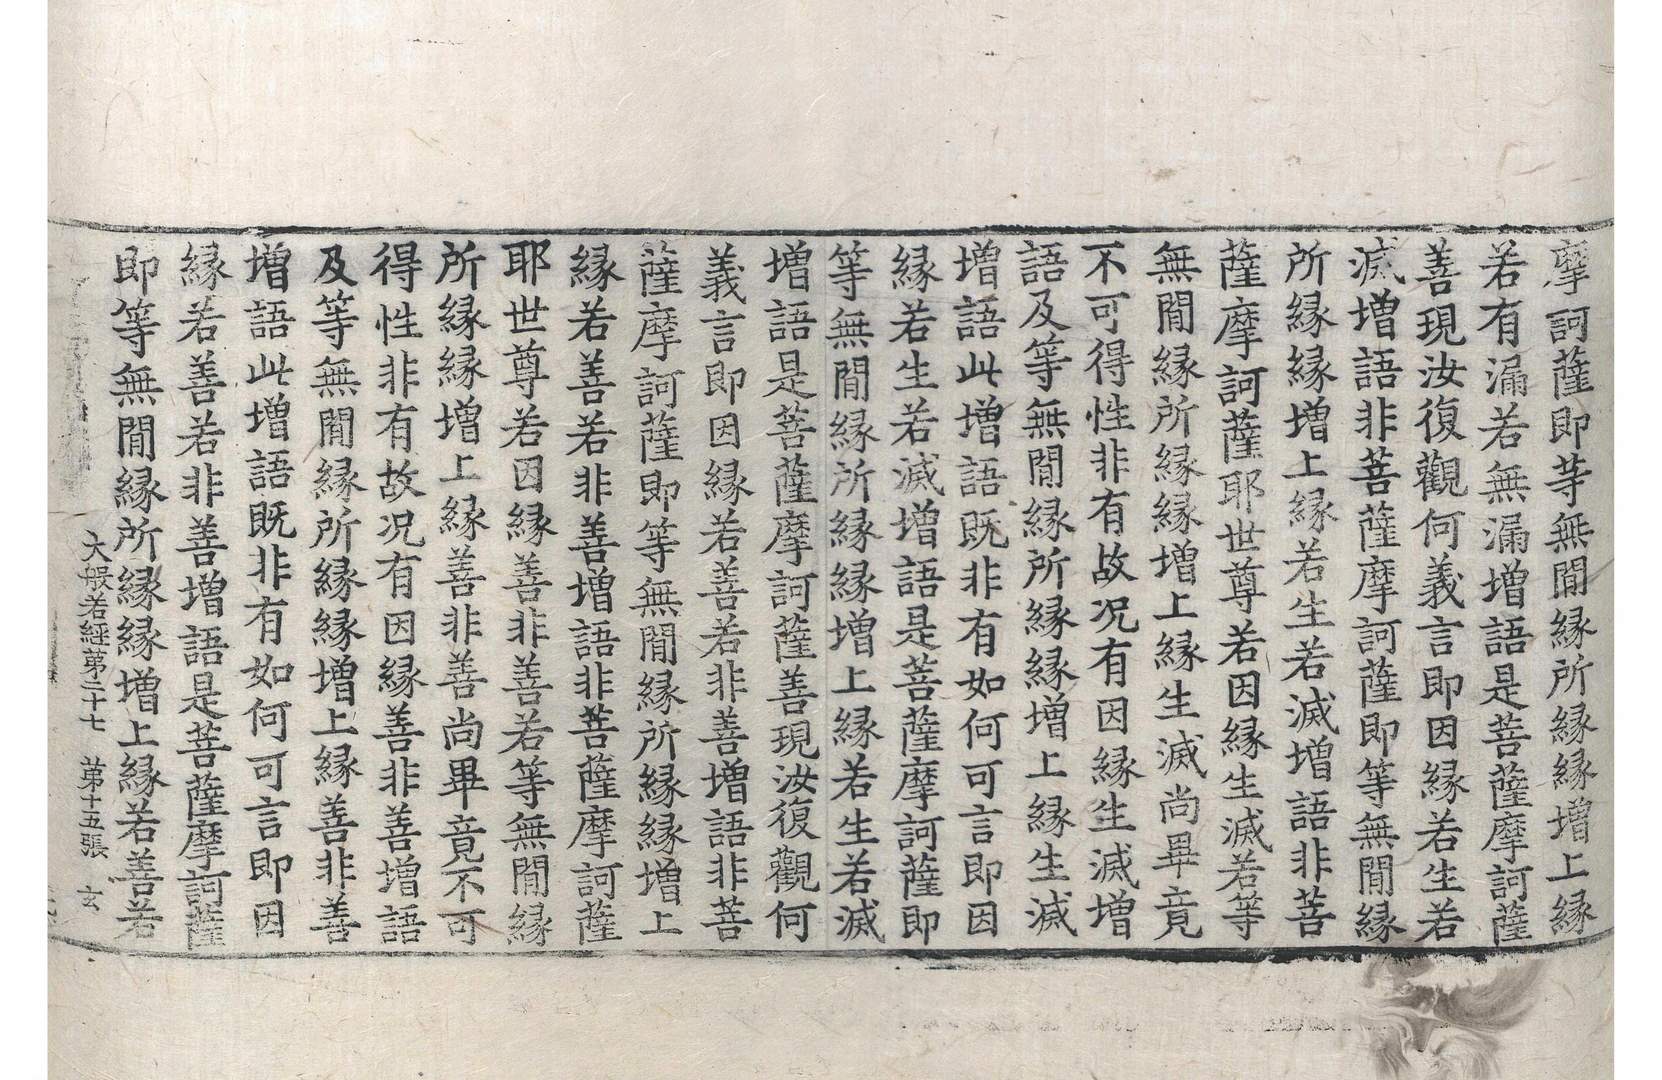 摩訶薩即等無閒縁所縁縁增上縁
若有漏若無漏增語是菩薩摩訶薩
善現汝復觀何義言即因縁若生若
滅增語非菩薩摩訶薩即等無閒縁
所縁縁增上縁若生若滅增語非菩
薩摩訶薩耶世尊若因縁生滅若等
無閒縁所縁縁增上縁生滅尚畢竟
不可得性非有故况有因縁生滅增
語及等無閒縁所縁縁增上縁生滅
增語此增語既非有如何可言即因
縁若生若滅增語是菩薩摩訶薩即
等無閒縁所縁縁增上縁若生若滅
增語是菩薩摩訶薩善現汝復觀何
義言即因縁若善若非善增語非菩
薩摩訶薩即等無閒縁所縁縁增上
縁若善若非善增語非菩薩摩訶薩
耶世尊若因縁善非善若等無閒縁
所縁縁增上縁善非善尚畢竟不可
得性非有故况有因縁善非善增語
及等無閒縁所縁縁增上縁善非善
增語此增語既非有如何可言即因
縁若善若非善增語是菩薩摩訶薩
即等無閒縁所縁縁增上縁若善若
大般若經第二十七 第十五張 玄